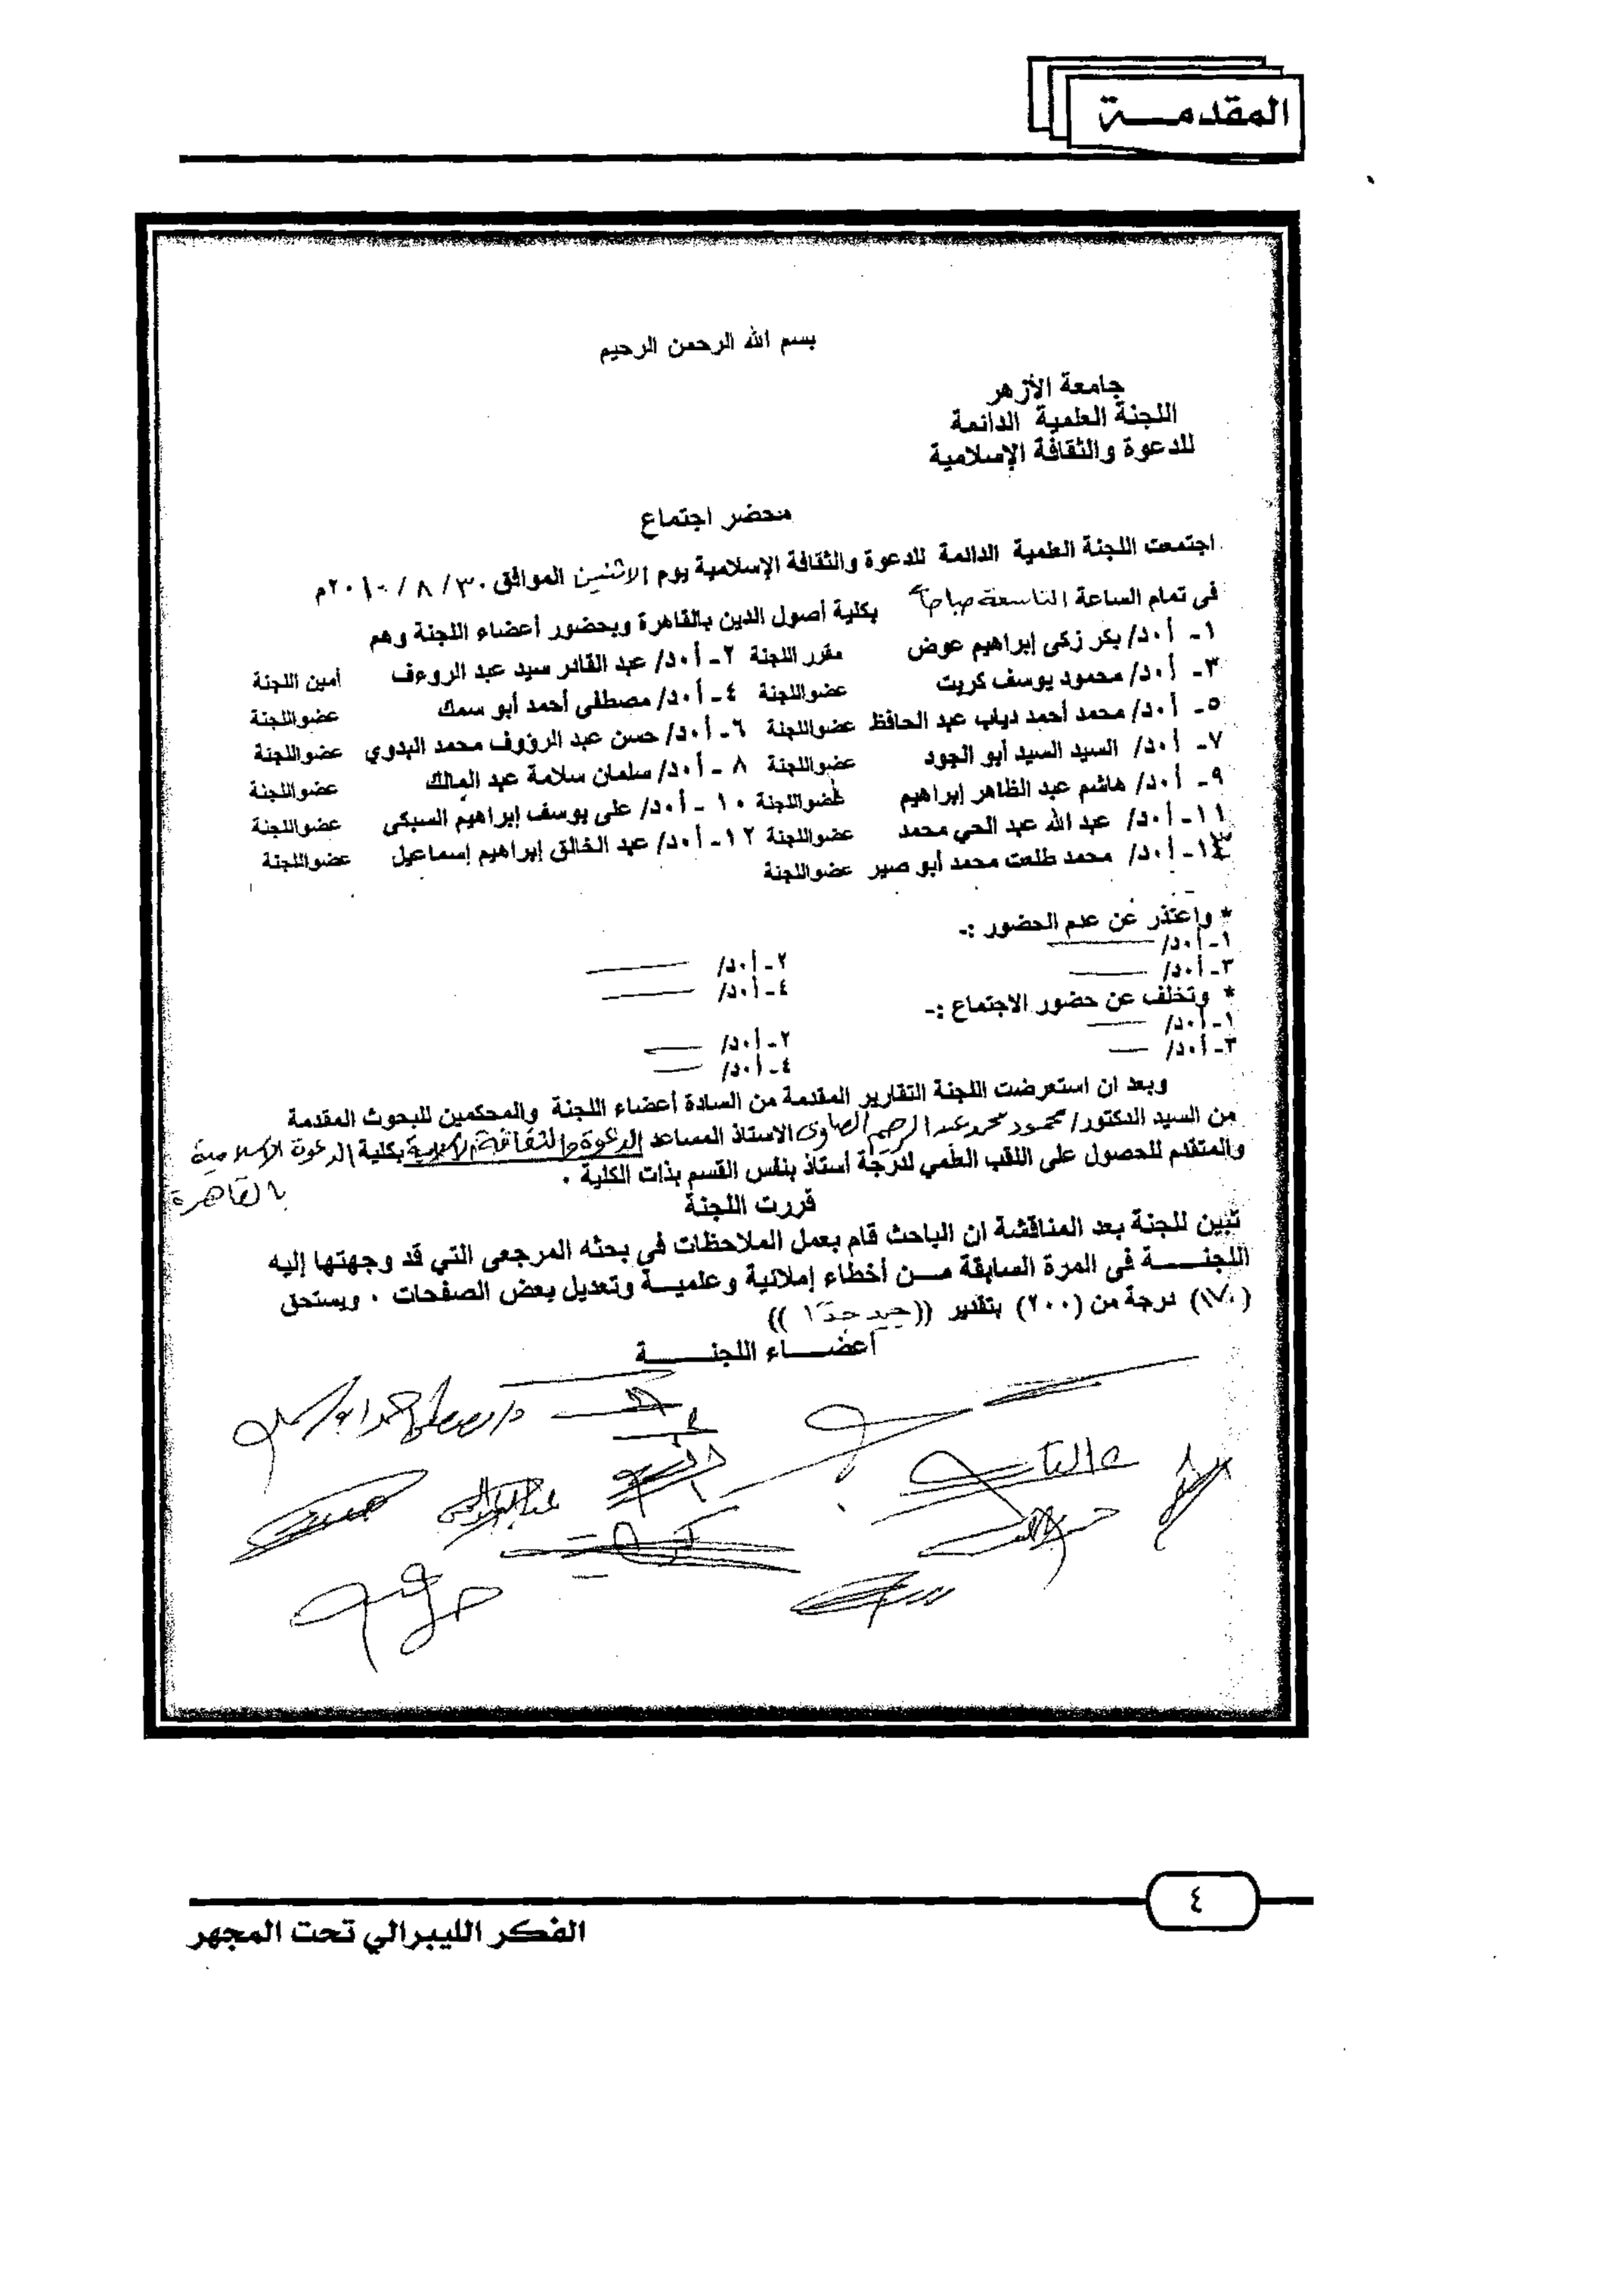 المقدمـــة
بسم الله الرحمن الرحيم
جامعة الأزهر
اللجنة العلمية الدائمة
للدعوة والثقافة الإسلامية
محضر اجتماع
اجتمعت اللجنة العلمية الدائمة للدعوة والثقافة الإسلامية يوم الاثنين الموافق ٣٠ / ٨ / ٢٠١٠م
فى تمام الساعة التاسعة صباحاً بكلية أصول الدين بالقاهرة وبحضور أعضاء اللجنة وهم
١- أ٠د/ بكر زكى إبراهيم عوض مقرر اللجنة ٢- أ٠د/ عبد القادر سيد عبد الروءف أمين اللجنة
٣- أ٠د/ محمود يوسف كريت عضو اللجنة ٤- أ٠د/ مصطفى أحمد أبو سمك عضو اللجنة
٥- أ٠د/ محمد أحمد دياب عبد الحافظ عضو اللجنة ٦- أ٠د/ حسن عبد الرؤوف محمد البدوي عضو اللجنة
٧- أ٠د/ السيد السيد أبو الجود عضو اللجنة ٨- أ٠د/ سلمان سلامة عبد المالك عضو اللجنة
٩- أ٠د/ هاشم عبد الظاهر إبراهيم عضو اللجنة ١٠- أ٠د/ على يوسف إبراهيم السبكى عضو اللجنة
١١- أ٠د/ عبد الله عبد الحي محمد عضو اللجنة ١٢- أ٠د/ عبد الخالق إبراهيم إسماعيل عضو اللجنة
١٣- أ٠د/ محمد طلعت محمد أبو صير عضو اللجنة
* واعتذر عن عدم الحضور :-
١- أ٠د/ ٢- أ٠د/
٣- أ٠د/ ٤- أ٠د/
* وتخلف عن حضور الاجتماع :-
١- أ٠د/ ٢- أ٠د/
٣- أ٠د/ ٤- أ٠د/
وبعد ان استعرضت اللجنة التقارير المقدمة من السادة أعضاء اللجنة والمحكمين للبحوث المقدمة
من السيد الدكتور/ محمود محمد عبد الرحيم الصاوى الاستاذ المساعد الدعوة والثقافة الإسلامية بكلية الدعوة الإسلامية
بالقاهرة
والمتقدم للحصول على اللقب العلمي لدرجة أستاذ بنفس القسم بذات الكلية ٠
قررت اللجنة
تبين للجنة بعد المناقشة ان الباحث قام بعمل الملاحظات فى بحثه المرجعى التي قد وجهتها إليه
اللجنـــة فى المرة السابقة مـــن أخطاء إملائية وعلميـــة وتعديل بعض الصفحات ٠ ويستحق
(١٧٠) درجة من (٢٠٠) بتقدير ((جيد جدًا))
أعضـــاء اللجنـــة
د/ مصطفى أحمد أبو سمك
٤
الفكر الليبرالي تحت المجهر